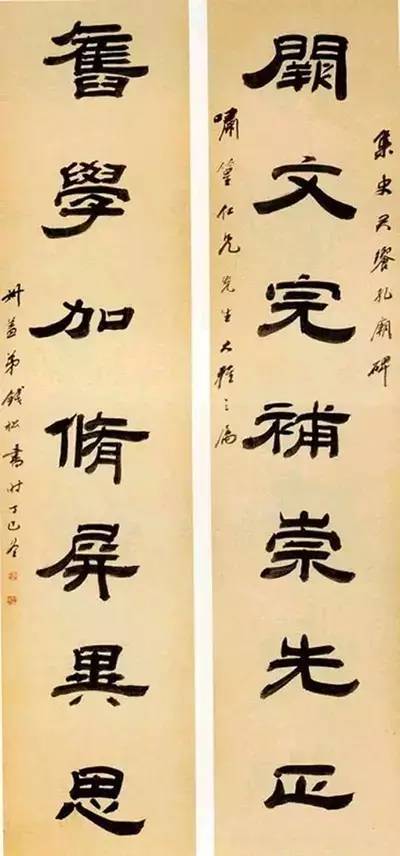 集史晨饗孔廟碑
闕文完補崇先正
嘯篁仁兄先生大雅之屬
舊學加脩屏異思
叔蓋弟錢松書時丁巳冬